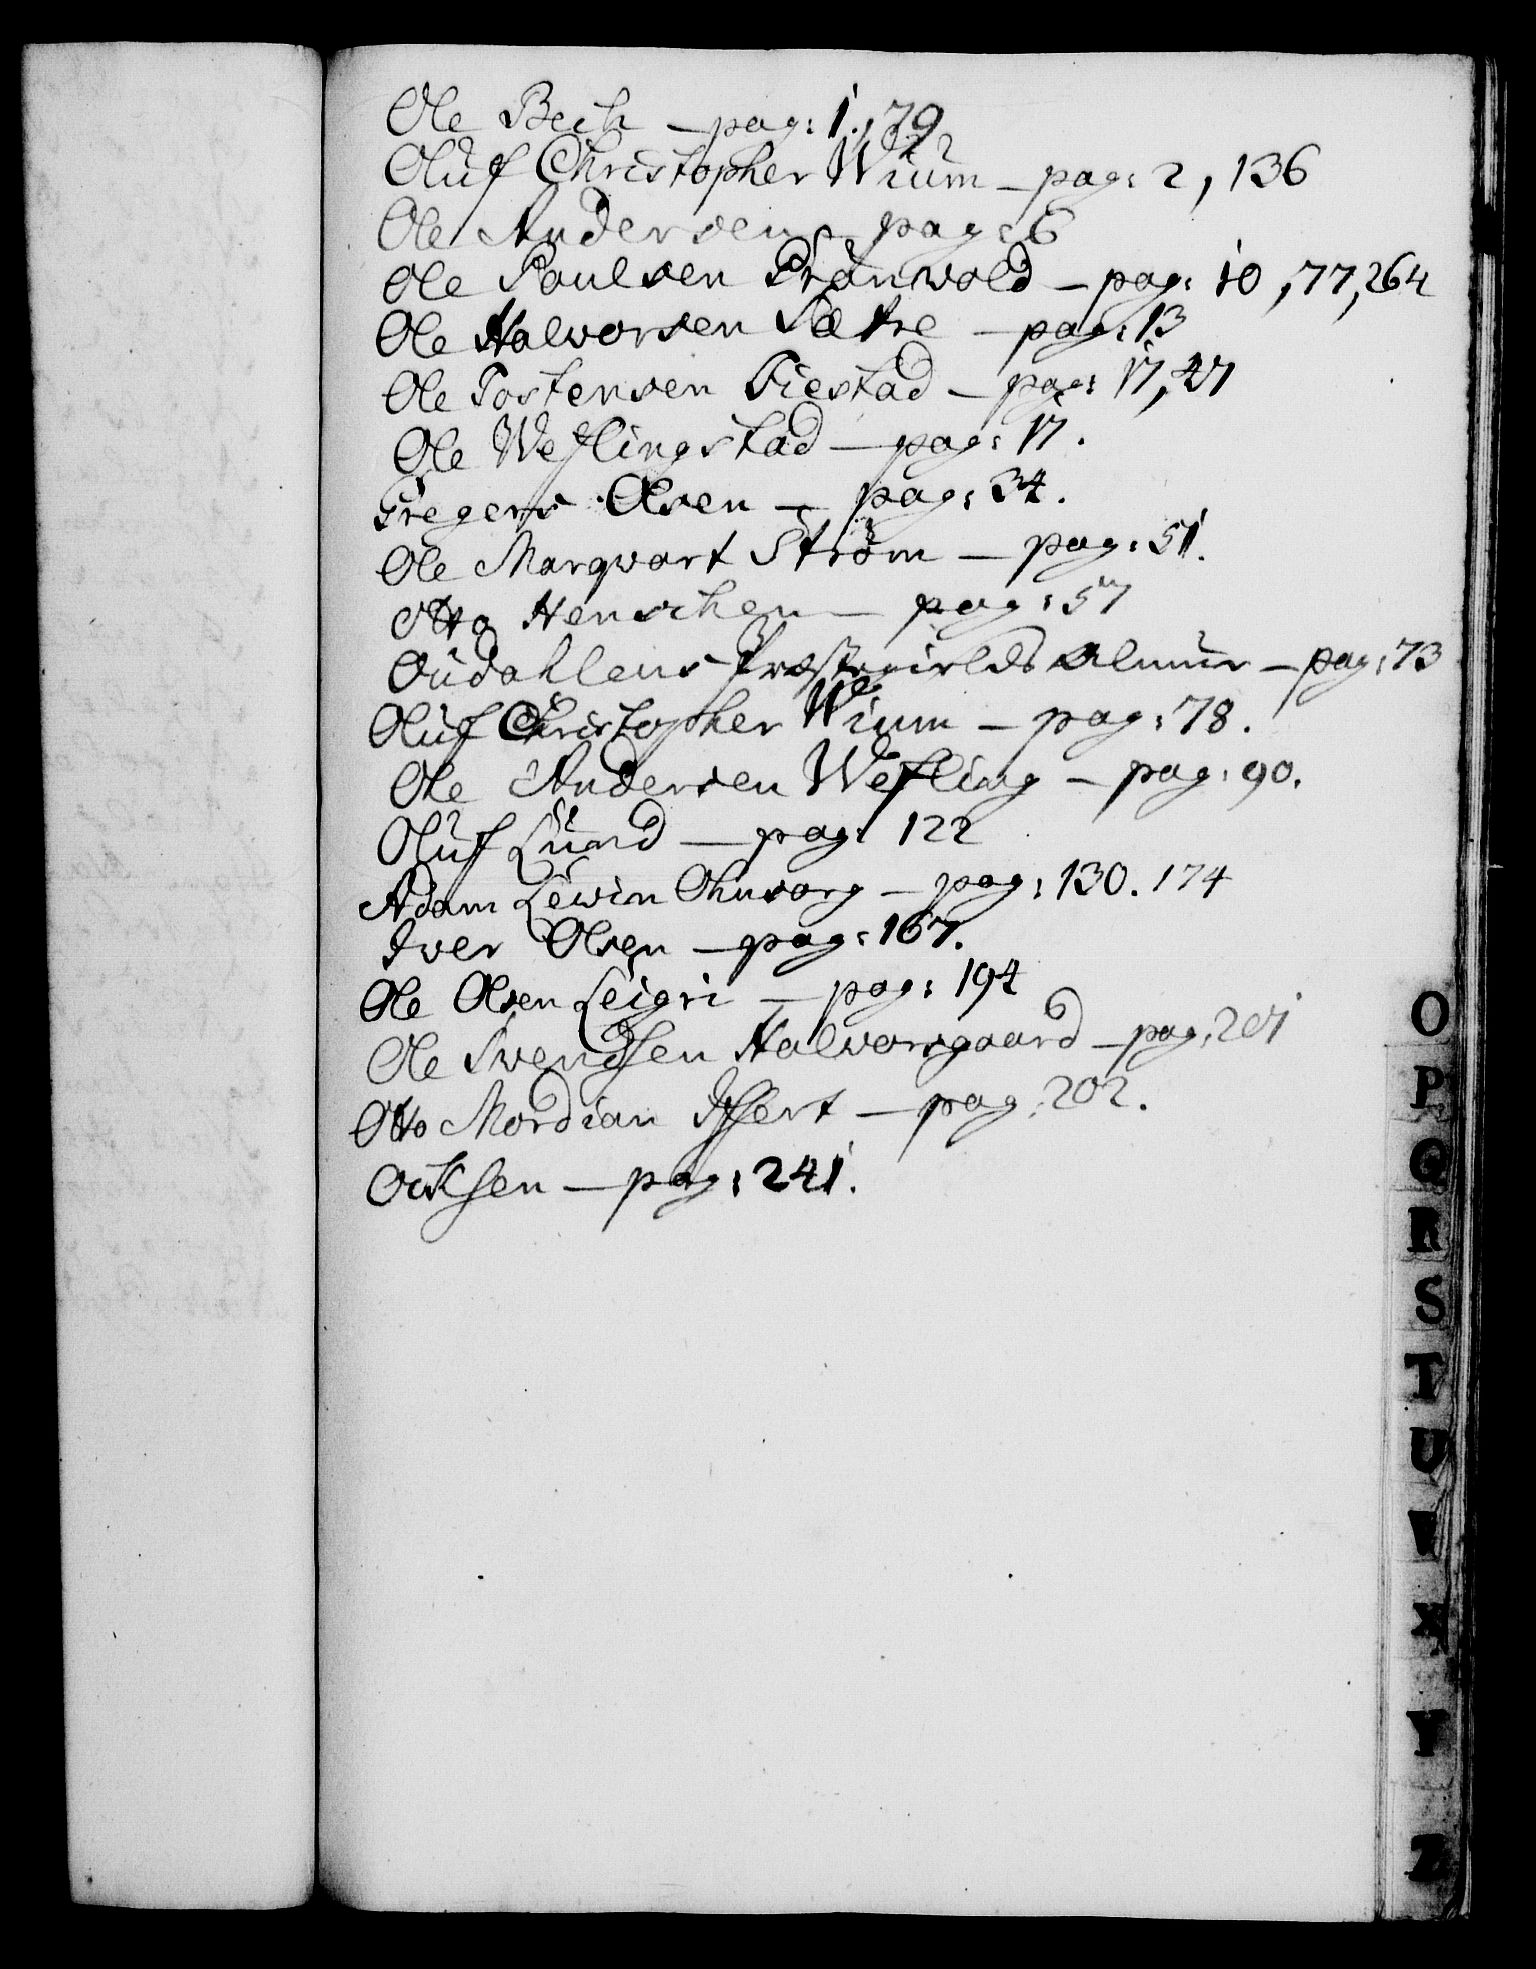 Ole Bech – pag: 1., 79
Oluf Christopher Wium – pag: 2, 136
Ole Andersen – pag: 6
Ole Paulsen Grönvold – pag: 10, 77, 264
Ole Halvorsen Sætre – pag: 13
Ole Tostensen Tiestad – pag: 17, 47
Ole Westlingstad – pag: 17.
Gregers Olsen – pag: 34.
Ole Marqvart Strøm – pag: 51.
Otto Henschen – pag: 57
Oudahlens Præstegields Almue – pag: 73
Oluf Christopher Wium – pag: 78.
Ole Andersen Wefling – pag: 90.
Oluf Lund – pag: 122
Adam Lewin Ohnsorg – pag: 130. 174
Iver Olsen – pag: 167.
Ole Olsen Leigri – pag: 194
Ole Svendsen Halvorsgaard – pag: 201
Otto Mordian – pag: 202.
– pag: 241.
O
P
Q
R
S
T
U
V
X
Y
Z